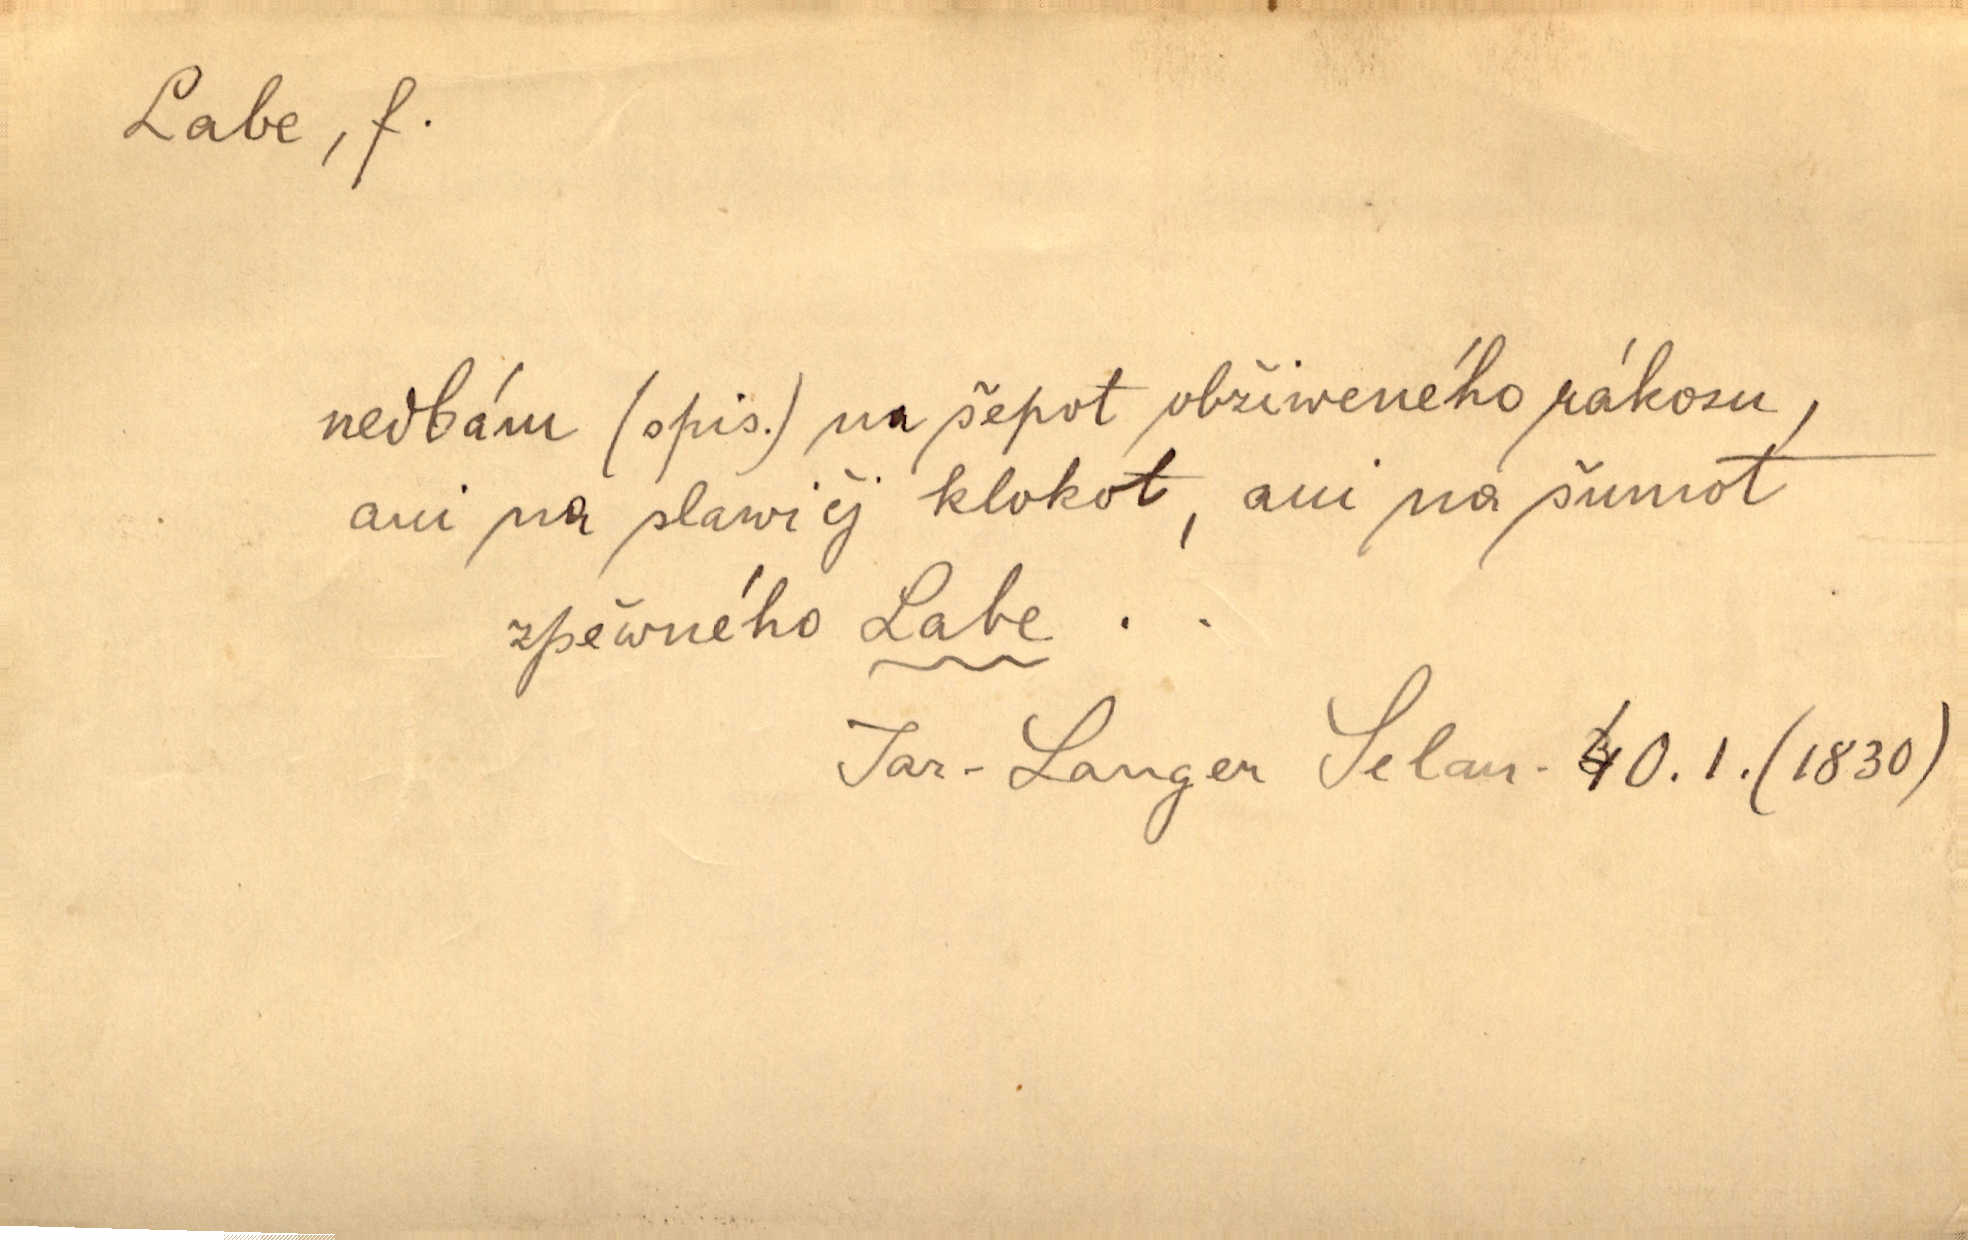 Labe, f.
nedbám (spis.) na šepot obžiweného rákosu,
ani na slawičj klokot, ani na šumot
zpěwného Labe . .
Jar-Langer Selan. 40.1.(1830)